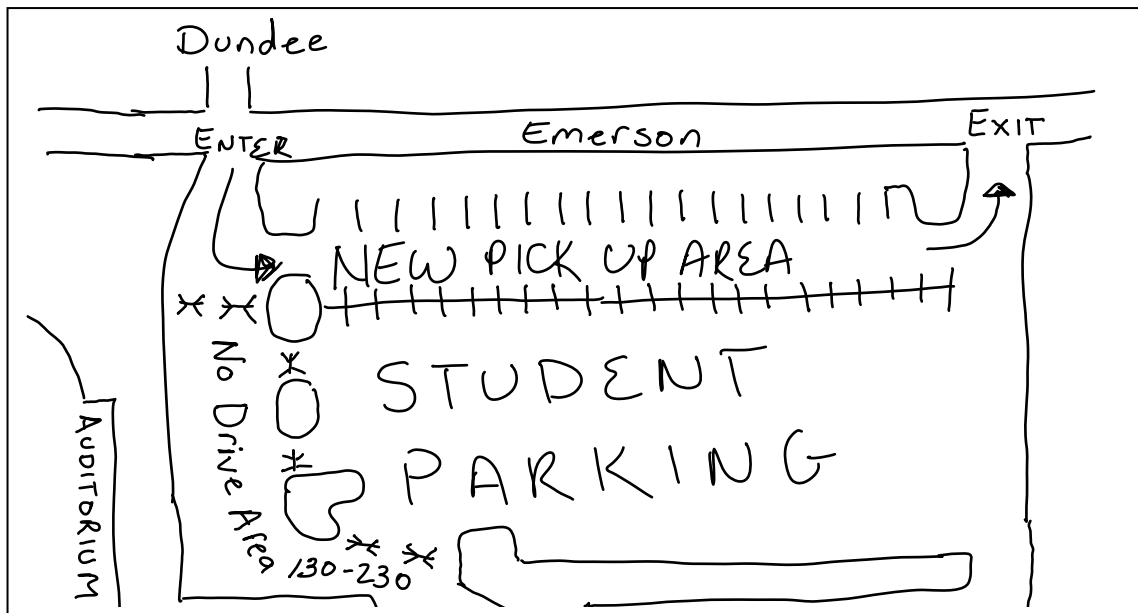 Dundee
ENTER
Emerson
EXIT
NEW PICK UP AREA
STUDENT
PARKING
No Drive Area
130-230
AUDITORIUM